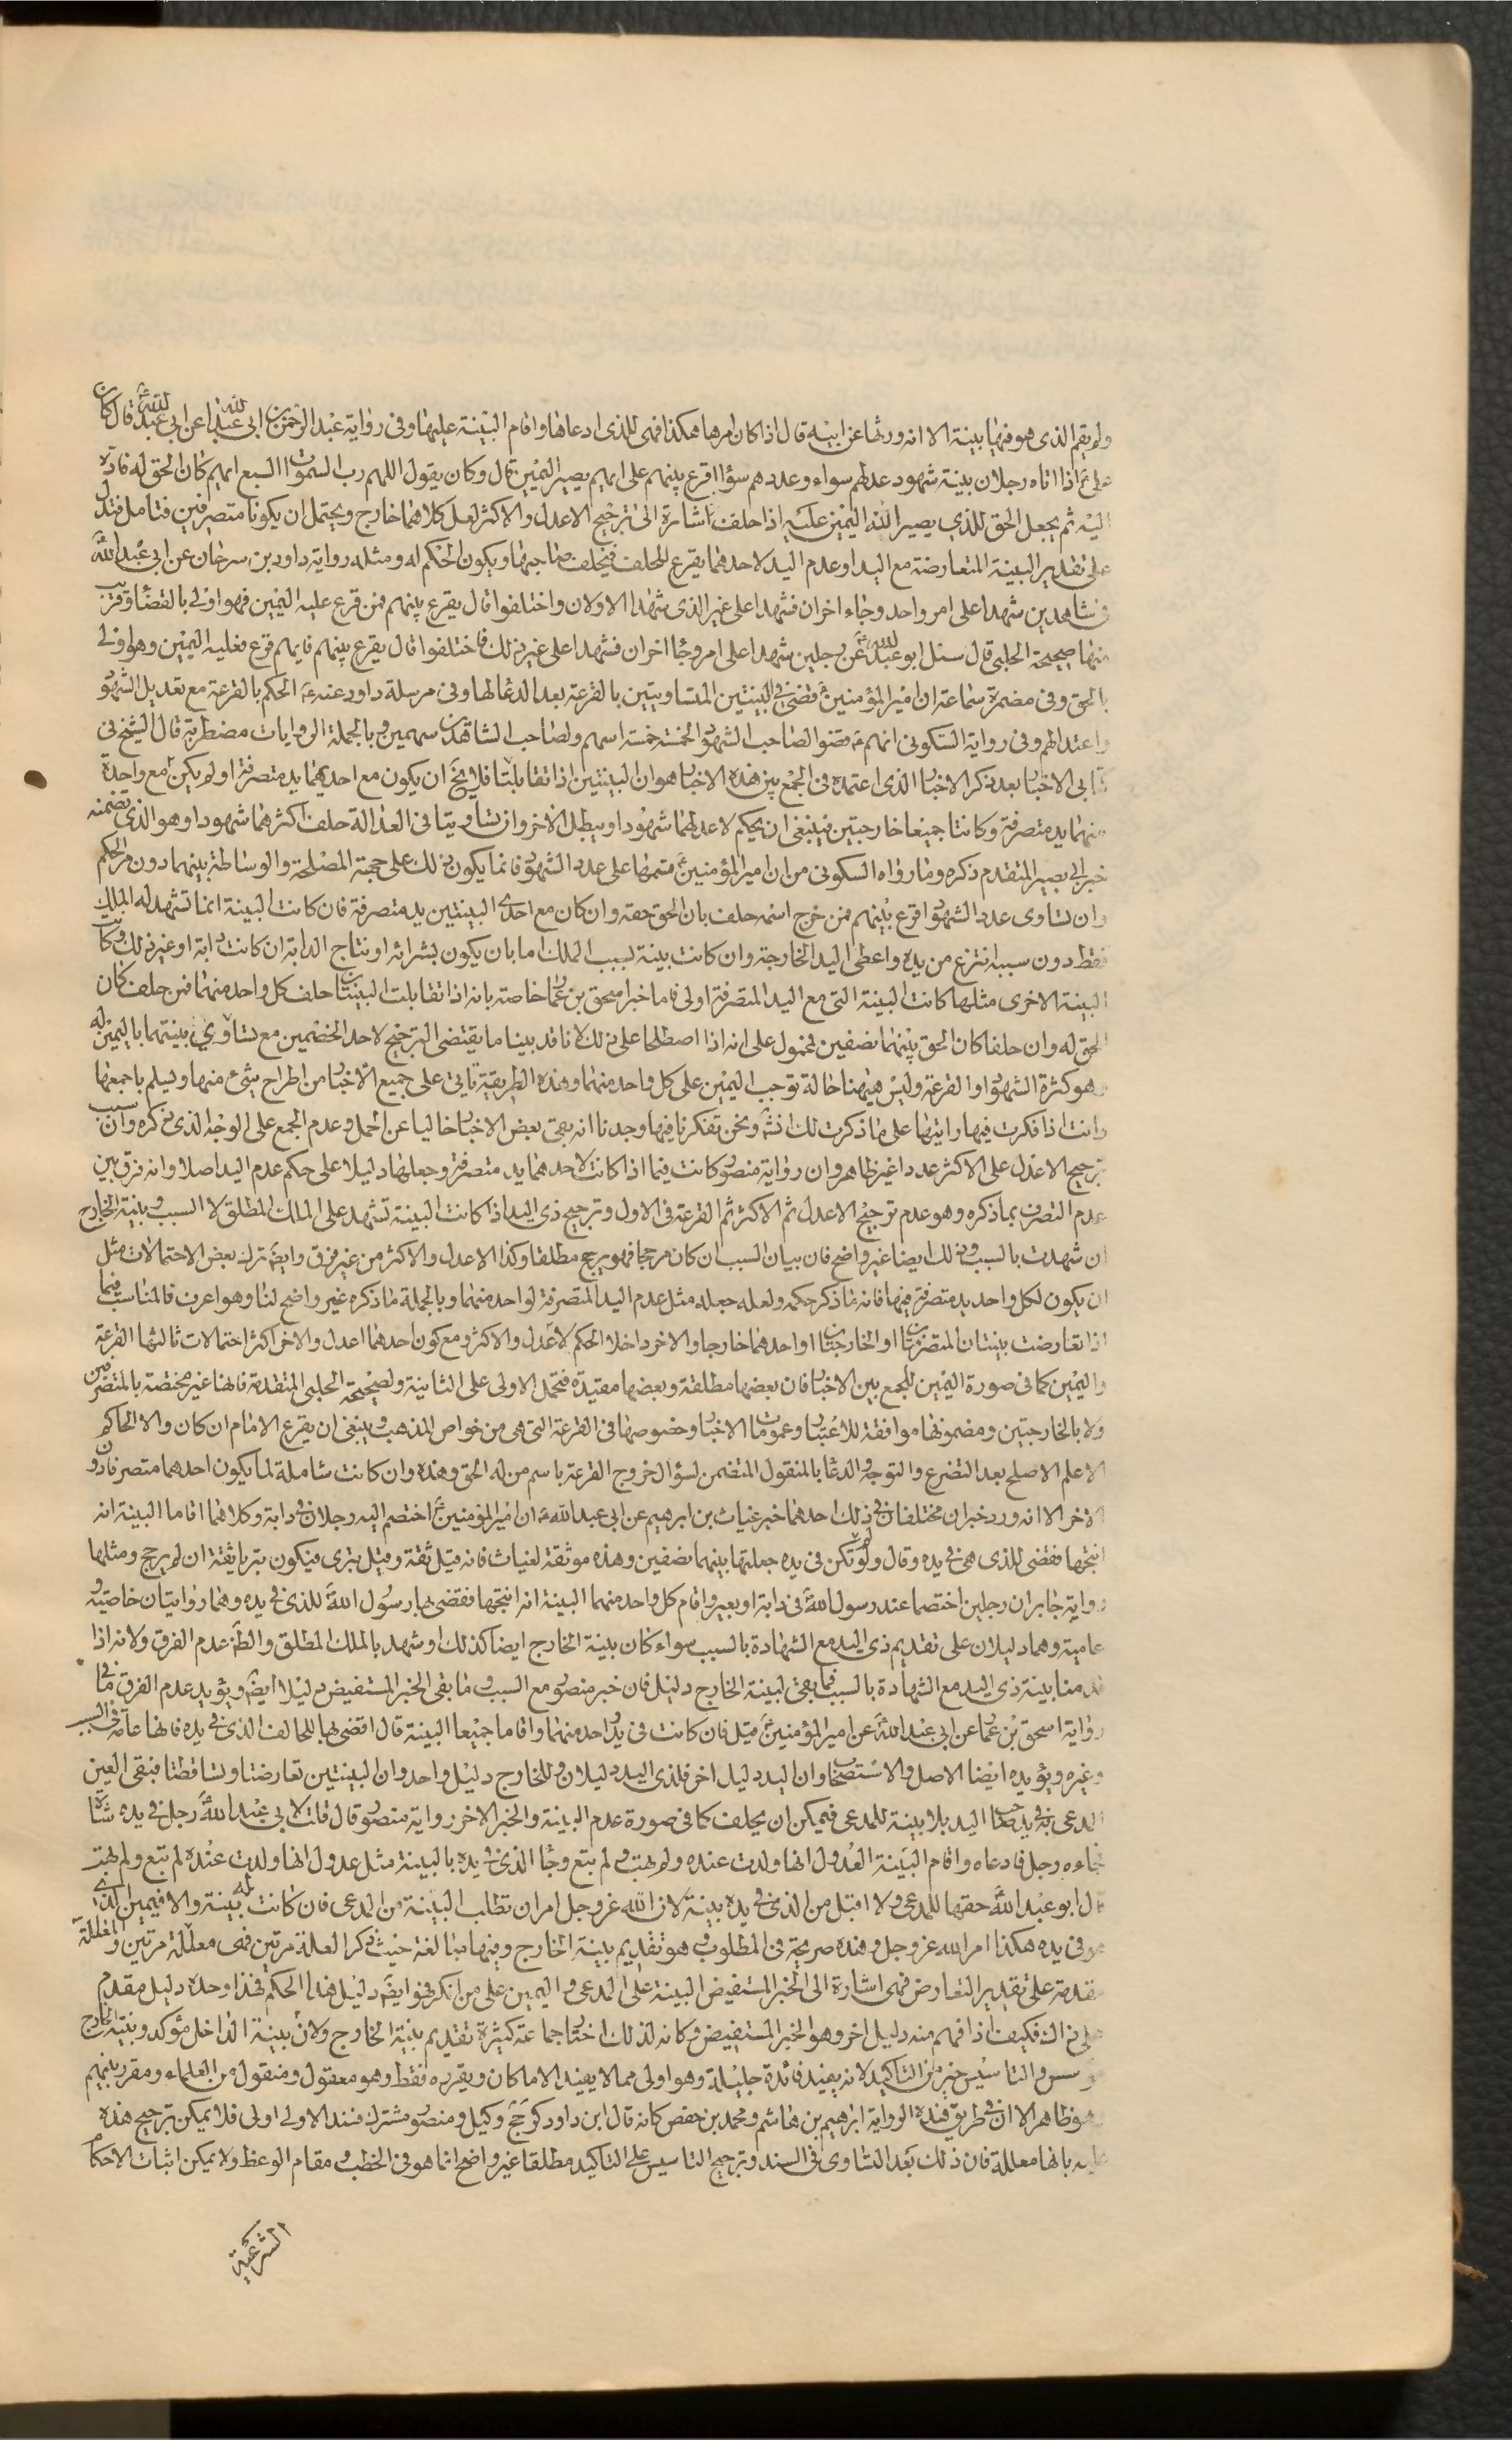 ولم يقم الذى هو فيها بينة الا انه ورثها عن ابيه قال اذا كان امرها هكذا فهى للذى ادعاها واقام البينة عليها وفى رواية عبد الرحمن بن ابى عبد الله عن ابى عبد الله ع قال كان
على ع اذا اتاه رجلان ببينة شهود عدلهم سواء وعددهم سواء اقرع بينهم على ايهم يصير اليمين قال وكان يقول اللهم رب السموات السبع ايهم كان الحق له فاده
اليه ثم يجعل الحق للذى يصير اليه اليمين عليه اذا حلف اشارة الى ترجيح الاعدل والاكثر لعل كلاهما خارج ويحتمل ان يكونا متصرفين فتامل فتدل
على تقدير البينة المتعارضة مع اليد او عدم اليد لاحدهما يقرع للحلف فيحلف صاحبها ويكون الحكم له ومثله رواية داود بن سرحان عن ابى عبد الله ع
فى شاهدين شهدا على امر واحد وجاء اخران فشهدا على غير الذى شهدا الاولان واختلفوا قال يقرع بينهم فمن قرع عليه اليمين فهو اولى بالقضاء وقريب
منها صحيحة الحلبى قال سئل ابو عبد الله ع عن رجلين شهدا على امر وجاء اخران فشهدا على غير ذلك فاختلفوا قال يقرع بينهم فايهم قرع فعليه اليمين وهو اولى
بالحق وفى مضمرة سماعة ان امير المؤمنين ع قضى فى البينتين المتساويتين بالقرعة بعد الدعا لها وفى مرسلة داود عنه ع الحكم بالقرعة مع تعديل الشهود
واعتدالهم وفى رواية السكونى انهم ع قضوا لصاحب الشهود الخمسة خمسة اسهم ولصاحب الشاهدين سهمين وبالجملة الروايات مضطربة قال الشيخ فى
كتابى الاخبار بعد ذكر الاخبار الذى اعتمده فى الجمع بين هذه الاخبار هو ان البينتين اذا تقابلتا فلا يخ ان يكون مع احديهما يد متصرفة او لم يكن مع واحدة
منهما يد متصرفة وكانتا جميعا خارجتين فينبغى ان يحكم لاعدلهما شهودا ويبطل الاخر وان تساويتا فى العدالة حلف اكثرهما شهودا وهو الذى تضمنه
خبر ابى بصير المتقدم ذكره وما رواه السكونى من ان امير المؤمنين ع قسمها على عدد الشهود فانما يكون ذلك على جهة المصلحة والوساطة بينهما دون مر الحكم
وان تساوى عدد الشهود اقرع بينهم فمن خرج اسمه حلف بان الحق حقه وان كان مع احدى البينتين يد متصرفة فان كانت البينة انما تشهد له بالملك
فقط دون سببه انتزع من يده واعطى اليد الخارجة وان كانت بينة بسبب الملك اما بان يكون بشرائه او نتاج الدابة ان كانت دابة او غير ذلك وكانت
البينة الاخرى مثلها كانت البينة التى مع اليد المتصرفة اولى فاما خبر اسحق بن عمار خاصة بانه اذا تقابلت البينتان حلف كل واحد منهما فمن حلف كان
الحق له وان حلفا كان الحق بينهما نصفين فمحمول على انه اذا اصطلحا على ذلك لانا قد بينا ما يقتضى الترجيح لاحد الخصمين مع تساوى بينتهما باليمين له
وهو كثرة الشهود او القرعة وليس هيهنا حالة توجب اليمين على كل واحد منهما وهذه الطريقة تاتى على جميع الاخبار من اطراح شئ منها وتسلم باجمعها
وانت اذا فكرت فيها رايتها على ما ذكرت لك انش ونحن تفكرنا فيها وجدنا انه بقى بعض الاخبار خاليا عن الحمل وعدم الجمع على الوجه الذى ذكره وان سبب
ترجيح الاعدل على الاكثر عددا غير ظاهر وان رواية منصور كانت فيما اذا كانت لاحدهما يد متصرفة وجعلها دليلا على حكم عدم اليد اصلا وانه فرق بين
عدم التصرف بما ذكره وهو عدم ترجيح الاعدل ثم الاكثر ثم القرعة فى الاول وترجيح ذى اليد اذا كانت البينة تشهد على الملك المطلق لا السبب وبينة الخارج
ان شهدت بالسبب وذلك ايضا غير واضح فان بيان السبب ان كان مرجحا فهو يرجح مطلقا وكذا الاعدل والاكثر من غير فرق وايضَ ترك بعض الاحتمالات مثل
ان يكون لكل واحد يد متصرفة فيها فانه ما ذكر حكمه ولعله جعله مثل عدم اليد المتصرفة لواحد منهما وبالجملة ما ذكره غير واضح لنا وهو اعرف فالمناسب فيما
اذا تعارضت بينتان المتصرفتان او الخارجتان او احدهما خارجا والاخر داخلا الحكم لاعدل والاكثر ومع كون احدهما اعدل والاخر اكثر احتمالات ثالثها القرعة
واليمين كما فى صورة اليمين للجمع بين الاخبار فان بعضها مطلقة وبعضها مقيدة فتحمل الاولى على الثانية ولصحيحة الحلبى المتقدمة فانها غير مختصة بالمتصرفين
ولا بالخارجتين ومضمونها موافقة للاعتبار وعمومات الاخبار وخصوصها فى القرعة التى هى من خواص المذهب وينبغى ان يقرع الامام ان كان والا الحاكم
الاعلم الاصلح بعد التضرع والتوجه والدعا بالمنقول المتضمن لسؤال خروج القرعة باسم من له الحق وهذه وان كانت شاملة لما يكون احدهما متصرفا دون
الاخر الا انه ورد خبران مختلفان فى ذلك احدهما خبر غياث بن ابرهيم عن ابى عبد الله ع ان امير المؤمنين ع اختصم اليه رجلان فى دابة وكلاهما اقاما البينة انه
انتجها فقضى للذى هى فى يده وقال ولو لم تكن فى يده جعلتها بينهما نصفين وهذه موثقة لغياث فانه قيل ثقة وقيل بترى فيكون بتريا ثقة ان لم يرجح ومثلها
رواية جابر ان رجلين اختصما عند رسول الله ص فى دابة او بعير واقام كل واحد منهما البينة انه انتجها فقضى بها رسول الله ص للذى فى يده وهما روايتان خاصية و
عامية وهما دليلان على تقديم ذى اليد مع الشهادة بالسبب سواء كان بينة الخارج ايضا كذلك او شهد بالملك المطلق والظَ عدم الفرق ولانه اذا
قدمنا بينة ذى اليد مع الشهادة بالسبب فما بقى لبينة الخارج دليل فان خبر منصور مع السبب وما بقى الخبر المستفيض دليلا ايضَ ويؤيد عدم الفرق ما فى
رواية اسحق بن عمار عن ابى عبد الله ع عن امير المؤمنين ع قيل فان كانت فى يد واحد منهما واقاما جميعا البينة قال اقضى بها للحالف الذى فى يده فانها عامة فى السبب
وغيره ويؤيده ايضا الاصل والاستصحاب وان اليد دليل اخر فلذى اليد دليلان وللخارج دليل واحد وان البينتين تعارضتا وتساقطتا فبقى العين
المدعى به فى يد صاحب اليد بلا بينة للمدعى فيمكن ان يحلف كما فى صورة عدم البينة والخبر الاخر رواية منصور قال قلت لابى عبد الله ع رجل فى يده شاة
فجاءه رجل فادعاه واقام البينة العدول انها ولدت عنده ولم يهب ولم يبع وجاء الذى فى يده بالبينة مثل عدول انها ولدت عنده لم يبع ولم يهب
قال ابو عبد الله ع حقها للمدعى ولا اقبل من الذى فى يده بينة لان الله عز وجل امر ان تطلب البينة من المدعى فان كانت له بينة والا فيمين الذى
هو فى يده هكذا امر الله عز وجل وهذه صريحة فى المطلوب وهو تقديم بينة الخارج وفيها مبالغة حيث ذكر العلة مرتين فهى معللة مرتين والمعللة
مقدمة على تقدير التعارض فهى اشارة الى الخبر المستفيض البينة على المدعى واليمين على من انكر فهو ايضَ دليل هذا الحكم فهذا وحده دليل مقدم
على ذاك فكيف اذا فهم منه دليل اخر وهو الخبر المستفيض وكانه لذلك اختار جماعة كثيرة تقديم بينة الخارج ولان بينة الداخل مؤكد وبينة الخارج
مؤسس والتاسيس خير من التاكيد لانه يفيد فائدة جليلة وهو اولى مما لا يفيد الا ما كان ويقرره فقط وهو معقول ومنقول من العلماء ومقرر بينهم
وهو ظاهر الا ان فى طريق هذه الرواية ابرهيم بن هاشم ومحمد بن حفص كانه قال ابن داود كر جخ وكيل ومنصور مشترك فسند الاولى اولى فلا يمكن ترجيح هذه
عليه بانها معللة فان ذلك بعد التساوى فى السند وترجيح التاسيس على التاكيد مطلقا غير واضح انما هو فى الخطب ومقام الوعظ ولا يمكن اثبات الاحكام
الشرعية